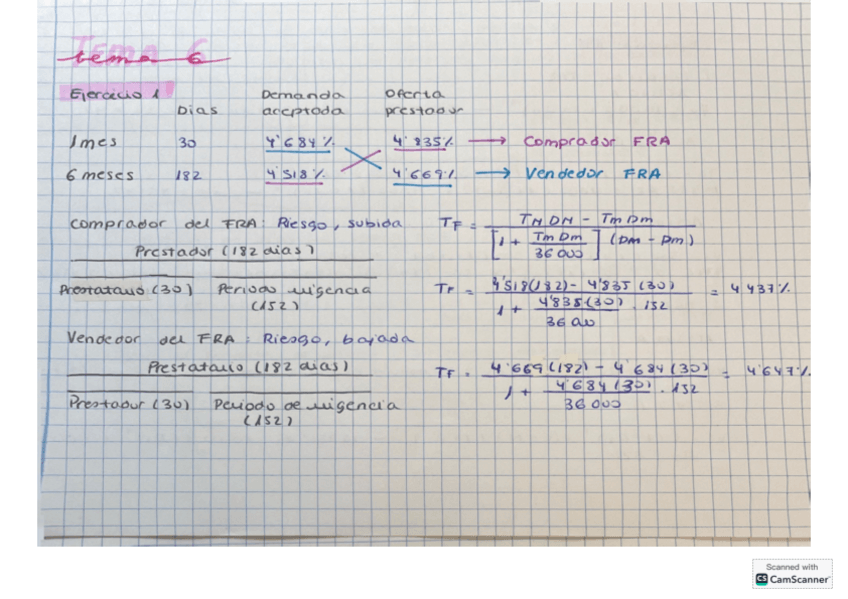 Tema 6
tema 6
Ejercicio 1
Dias Demanda aceptada Oferta prestador
1 mes 30 4'684% 4'835% → Comprador FRA
6 meses 182 4'518% 4'669% → Vendedor FRA
Comprador del FRA: Riesgo, subida
Prestador (182 dias)
Prestatario (30) Periodo vigencia
(152)
TF = TM DM - Tm Dm / [1 + Tm Dm / 36000] (DM - Dm)
TF = 4'518(182) - 4'835(30) / 1 + 4'835(30) / 36000 . 152 = 4'437%
Vendedor del FRA: Riesgo, bajada
Prestatario (182 dias)
Prestador (30) Periodo de vigencia
(152)
TF = 4'669(182) - 4'684(30) / 1 + 4'684(30) / 36000 . 152 = 4'647%
Scanned with
CS CamScanner